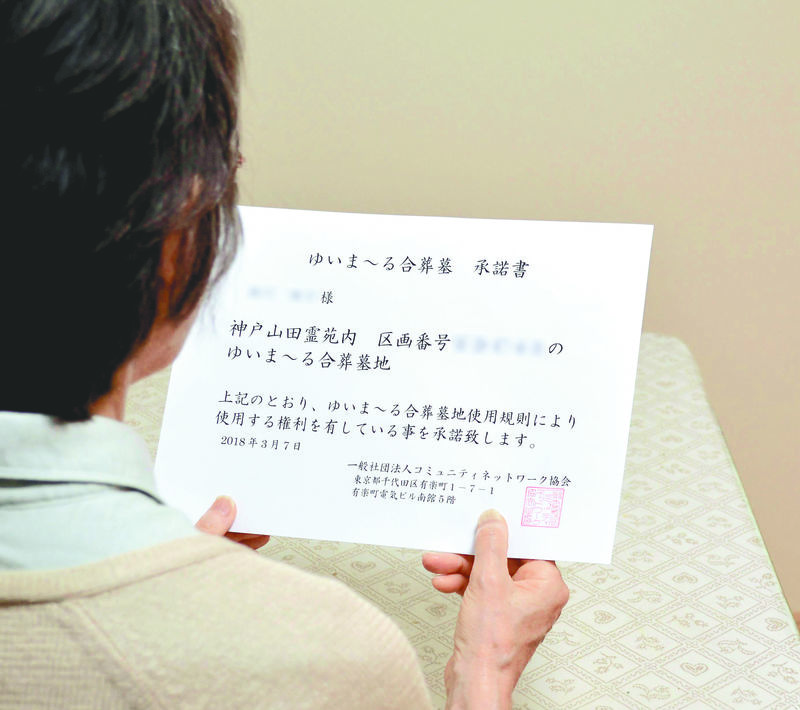 ゆいま～る合葬墓　承諾書
様
神戸山田霊苑内　区画番号　の
ゆいま～る合葬墓地
上記のとおり、ゆいま～る合葬墓地使用規則により
使用する権利を有している事を承諾致します。
2018年3月7日
一般社団法人コミュニティネットワーク協会
東京都千代田区有楽町1－7－1
有楽町電気ビル南館5階